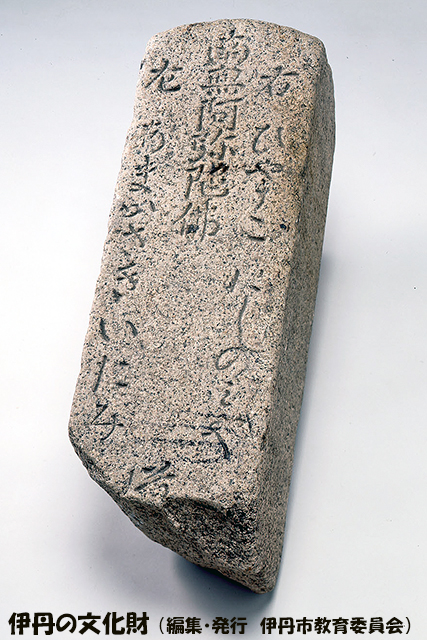 右 ひやうこ
にしの
南無阿弥陀佛
左 あまかさきいたみ
伊丹の文化財（編集・発行 伊丹市教育委員会）